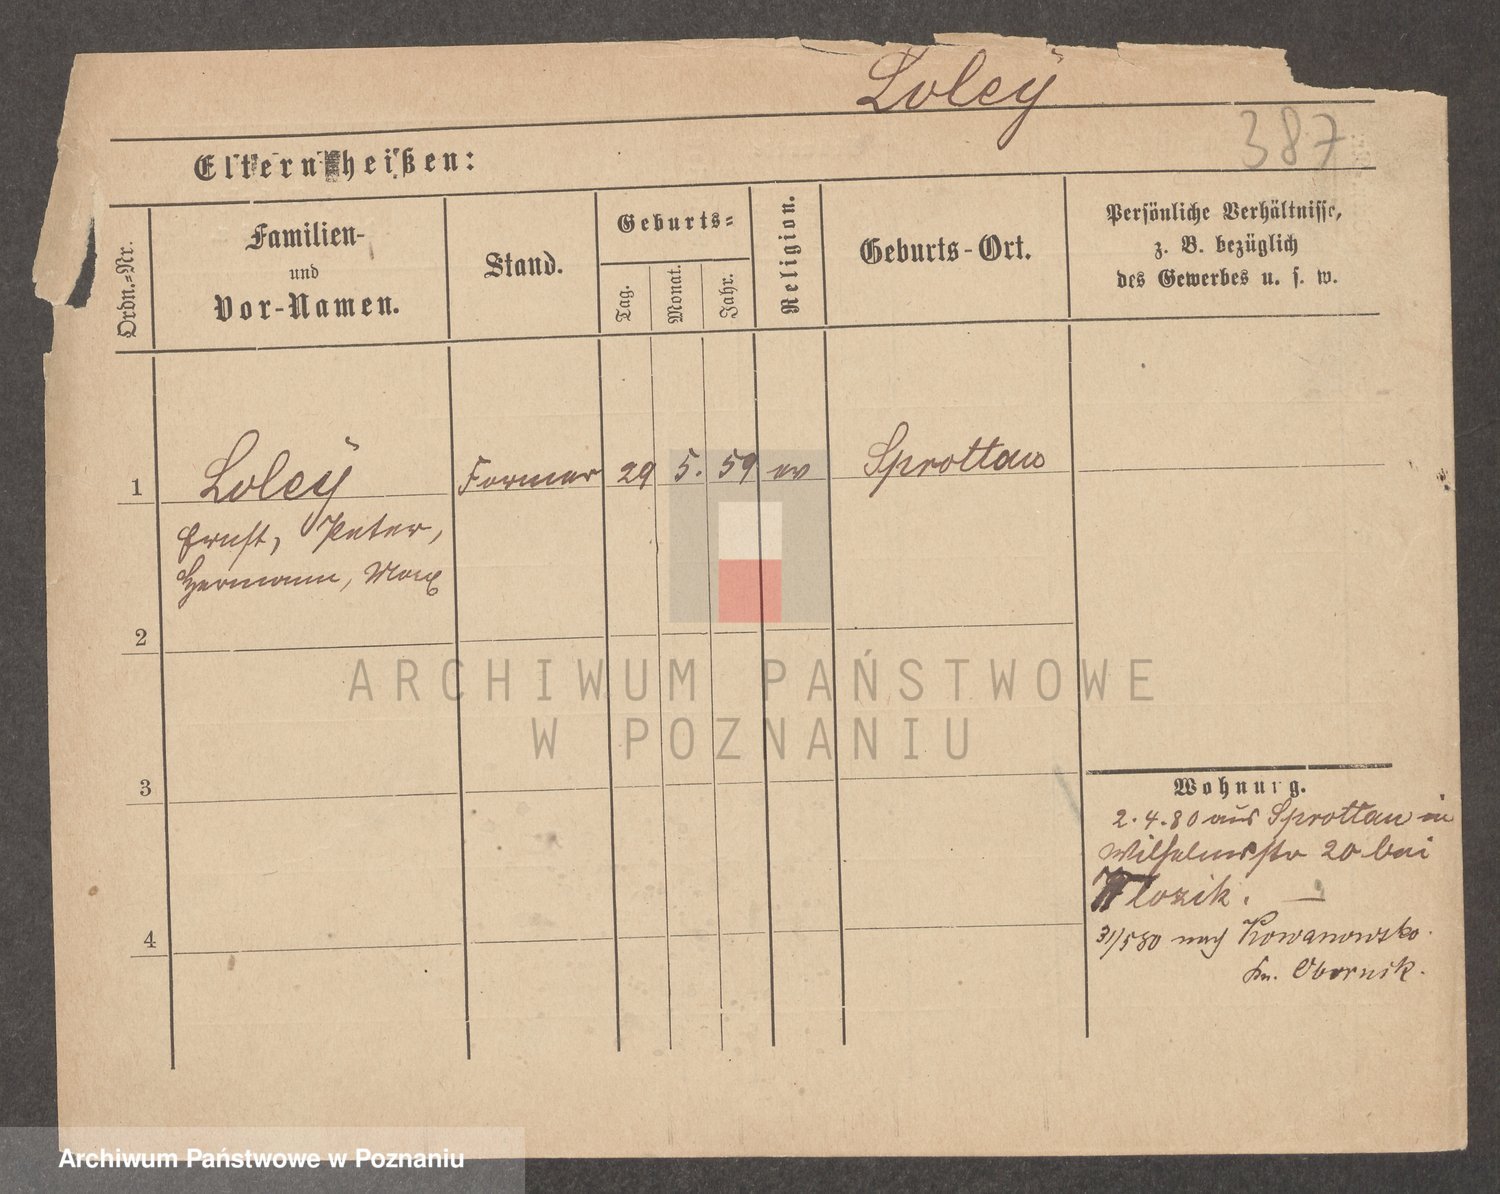 Loley
387
Eltern heißen:
Ordn.-Nr.
Familien-
und
Vor-Namen.
Stand.
Geburts-
Tag.
Monat.
Jahr.
Religion.
Geburts-Ort.
Persönliche Verhältnisse,
z. B. bezüglich
des Gewerbes u. s. w.
1 Loley Former 29 5. 59 ev Sprottau
Ernst, Peter,
Hermann, Max
2
3
4
Wohnung.
2.4.80 aus Sprottau in
Wilhelmsstr 20 bei
Klozik.
31/5 80 nach Kowanowsko.
Kr. Obornik.
ARCHIWUM PAŃSTWOWE
W POZNANIU
Archiwum Państwowe w Poznaniu